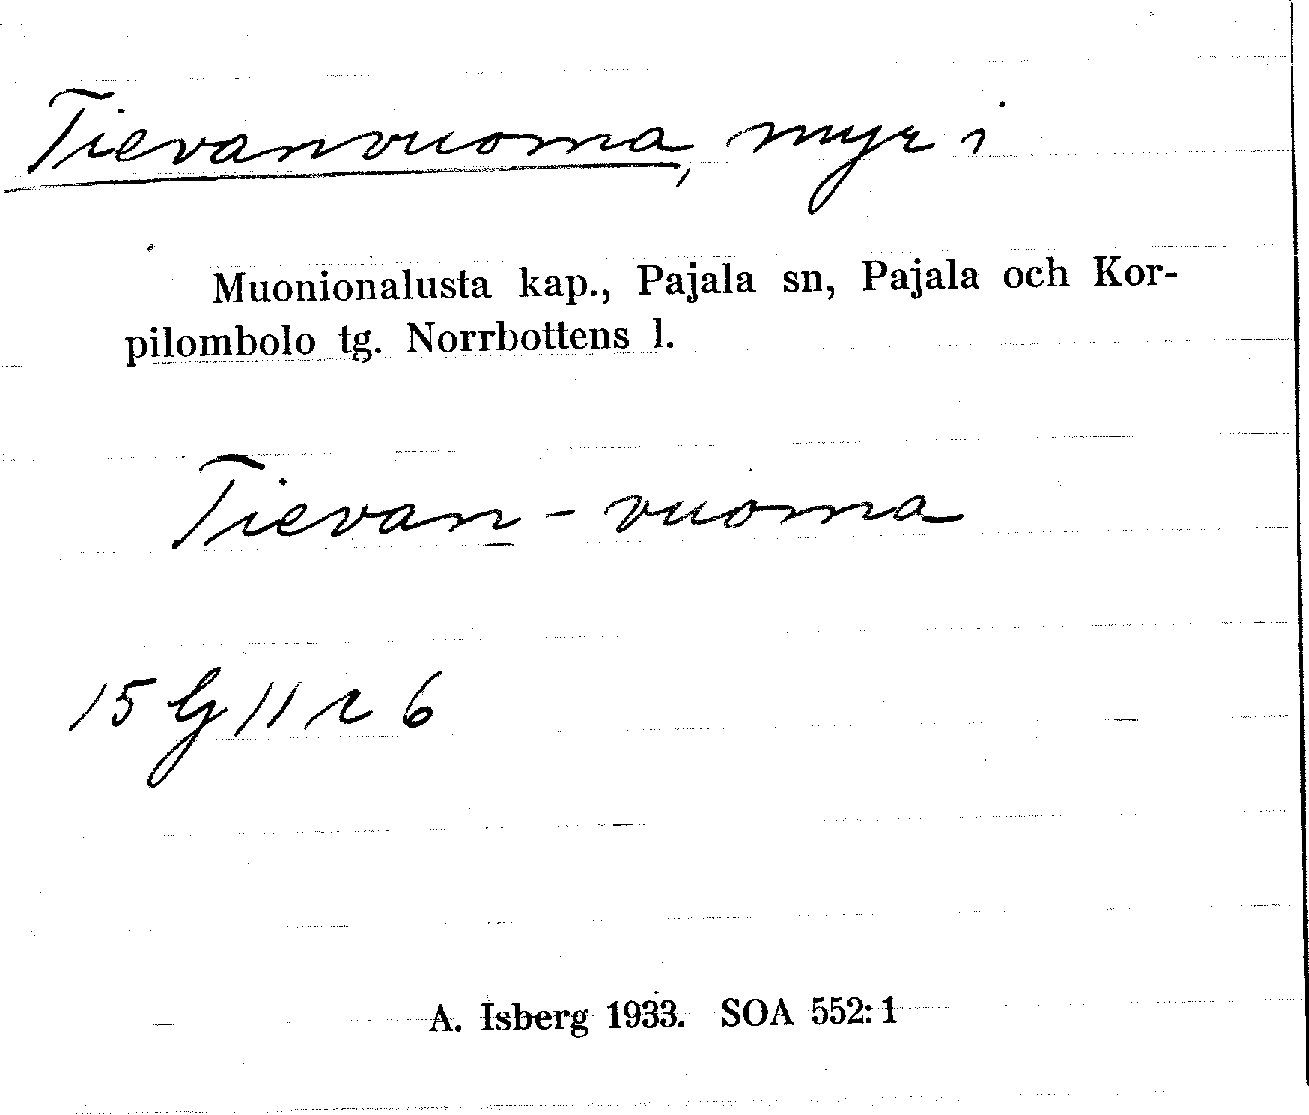 Tievanvuoma, myr i
Muonionalusta kap., Pajala sn, Pajala och Kor-
pilombolo tg. Norrbottens l.
Tievan - vuoma
15 G 11 r 6
A. Isberg 1933. SOA 552:1